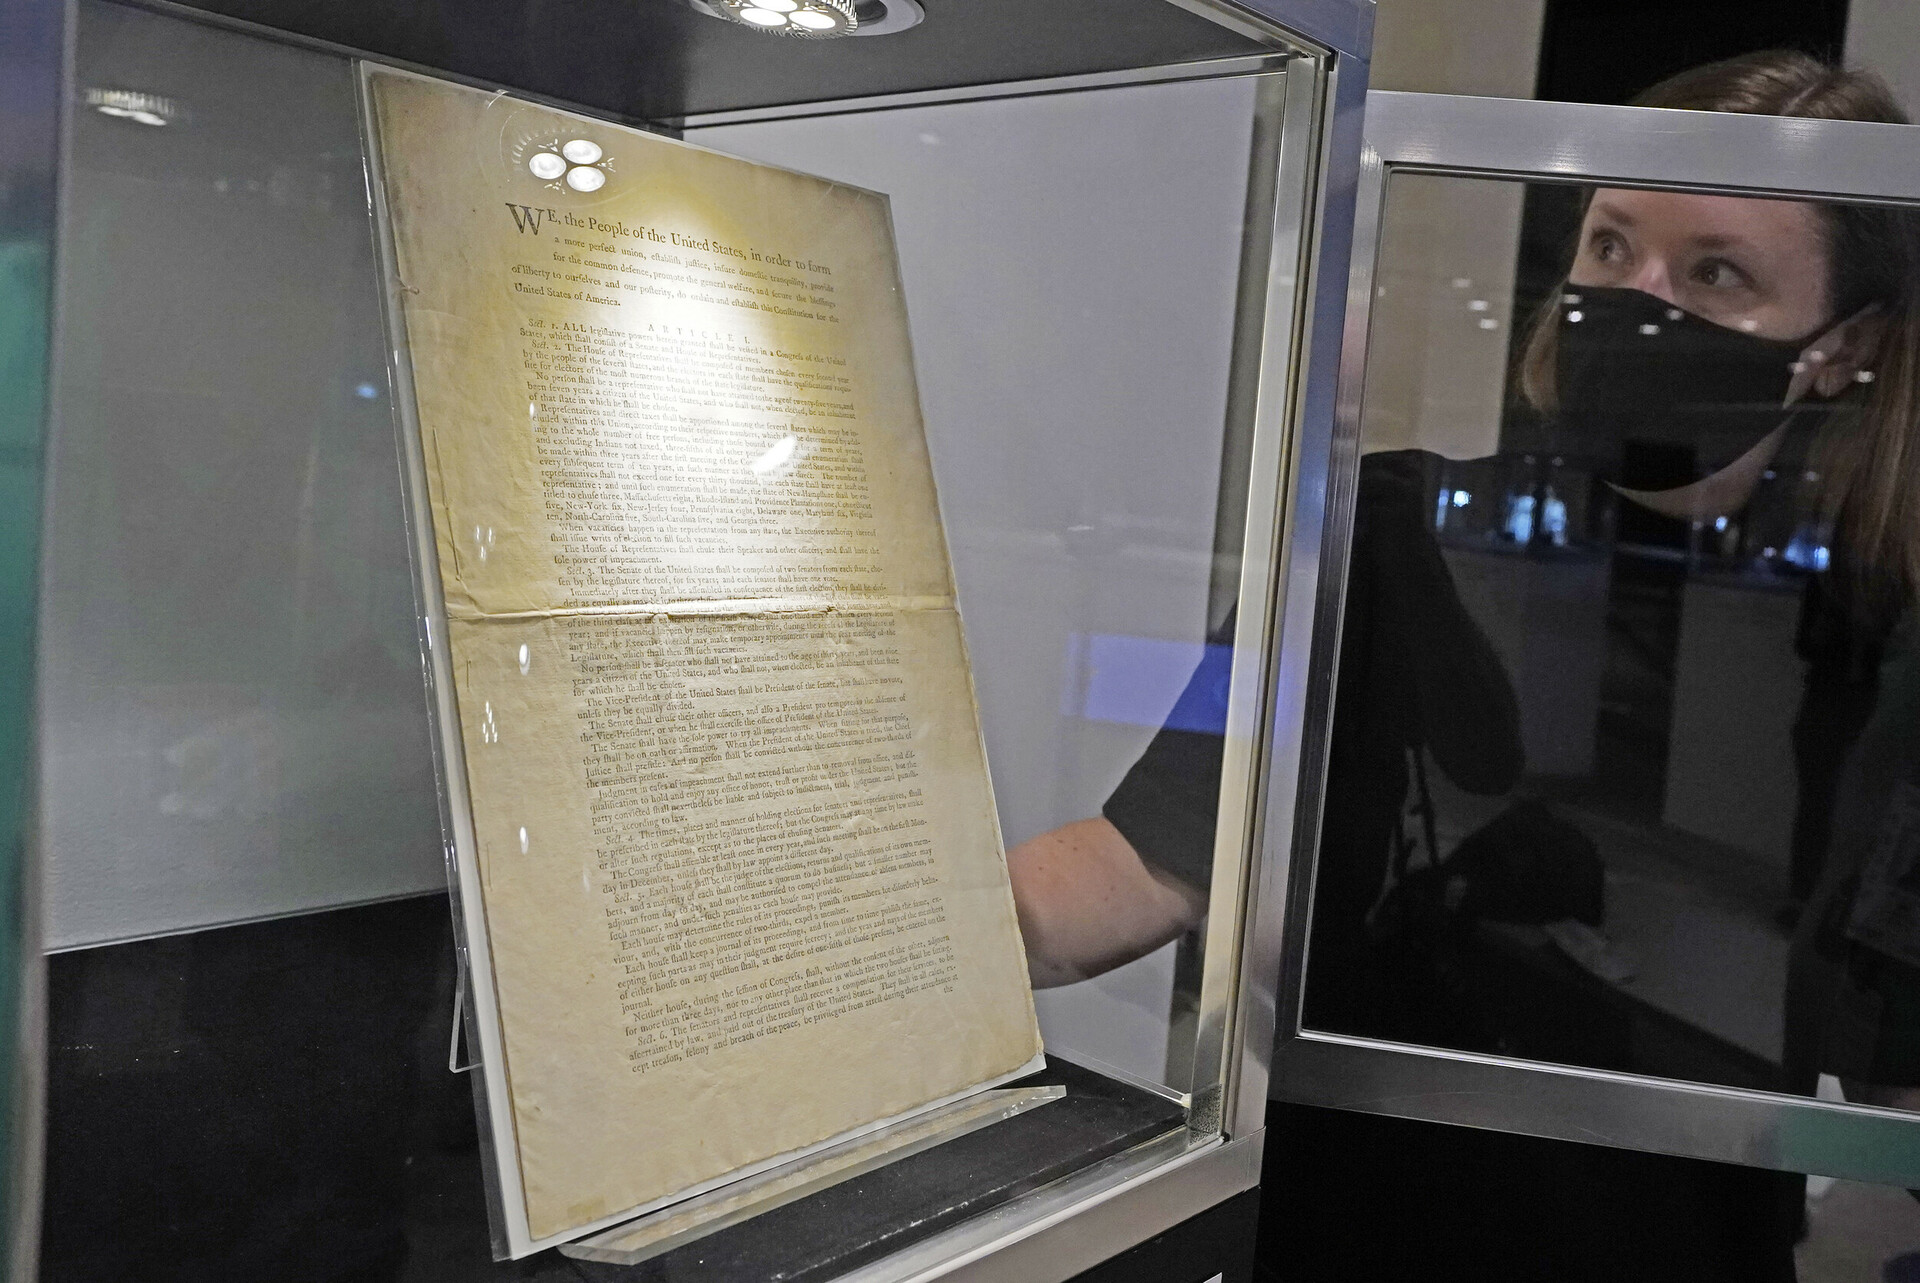 WE, the People of the United States, in order to form
a more perfect union, eſtabliſh juſtice, inſure domeſtic tranquility, provide
for the common defence, promote the general welfare, and ſecure the bleſſings
of liberty to ourſelves and our poſterity, do ordain and eſtabliſh this Conſtitution for the
United States of America.
ARTICLE I.
Sect. 1. ALL legiſlative powers herein granted ſhall be veſted in a Congreſs of the United
States, which ſhall conſiſt of a Senate and Houſe of Repreſentatives.
Sect. 2. The Houſe of Repreſentatives ſhall be compoſed of members choſen every ſecond year
by the people of the ſeveral ſtates, and the electors in each ſtate ſhall have the qualifications requi-
ſite for electors of the moſt numerous branch of the ſtate legiſlature.
No perſon ſhall be a repreſentative who ſhall not have attained to the age of twenty-five years, and
been ſeven years a citizen of the United States, and who ſhall not, when elected, be an inhabitant
of that ſtate in which he ſhall be choſen.
Repreſentatives and direct taxes ſhall be apportioned among the ſeveral ſtates which may be in-
cluded within this Union, according to their reſpective numbers, which ſhall be determined by add-
ing to the whole number of free perſons, including thoſe bound to for a term of years,
and excluding Indians not taxed, three-fifths of all other enumeration ſhall
be made within three years after the firſt meeting of the United States, and within
every ſubſequent term of ten years, in ſuch manner as they law direct. The number of
repreſentatives ſhall not exceed one for every thirty thouſand, but each ſtate ſhall have at leaſt one
repreſentative; and until ſuch enumeration ſhall be made, the ſtate of New-Hampſhire ſhall be en-
titled to chuſe three, Maſſachuſetts eight, Rhode-Iſland and Providence Plantations one, Connecticut
five, New-York ſix, New-Jerſey four, Pennſylvania eight, Delaware one, Maryland ſix, Virginia
ten, North-Carolina five, South-Carolina five, and Georgia three.
When vacancies happen in the repreſentation from any ſtate, the Executive authority thereof
ſhall iſſue writs of election to fill ſuch vacancies.
The Houſe of Repreſentatives ſhall chuſe their Speaker and other officers; and ſhall have the
ſole power of impeachment.
Sect. 3. The Senate of the United States ſhall be compoſed of two ſenators from each ſtate, cho-
ſen by the legiſlature thereof, for ſix years; and each ſenator ſhall have one vote.
Immediately after they ſhall be aſſembled in conſequence of the firſt election, they ſhall be divi-
ded as equally as may be into three claſſes.
of the third claſs at the expiration of the ſixth year,
year; and if vacancies happen by reſignation, or otherwiſe, during the receſs of the Legiſlature of
any ſtate, the Executive thereof may make temporary appointments until the next meeting of the
Legiſlature, which ſhall then fill ſuch vacancies.
No perſon ſhall be a ſenator who ſhall not have attained to the age of thirty years, and been nine
years a citizen of the United States, and who ſhall not, when elected, be an inhabitant of that ſtate
for which he ſhall be choſen.
The Vice-Preſident of the United States ſhall be Preſident of the ſenate, but ſhall have no vote,
unleſs they be equally divided.
The Senate ſhall chuſe their other officers, and alſo a Preſident pro tempore, in the abſence of
the Vice-Preſident, or when he ſhall exerciſe the office of Preſident of the United States.
The Senate ſhall have the ſole power to try all impeachments. When ſitting for that purpoſe,
they ſhall be on oath or affirmation. When the Preſident of the United States is tried, the Chief
Juſtice ſhall preſide: And no perſon ſhall be convicted without the concurrence of two-thirds of
the members preſent.
Judgment in caſes of impeachment ſhall not extend further than to removal from office, and diſ-
qualification to hold and enjoy any office of honor, truſt or profit under the United States; but the
party convicted ſhall nevertheleſs be liable and ſubject to indictment, trial, judgment and puniſh-
ment, according to law.
Sect. 4. The times, places and manner of holding elections for ſenators and repreſentatives, ſhall
be preſcribed in each ſtate by the legiſlature thereof; but the Congreſs may at any time by law make
or alter ſuch regulations, except as to the places of chuſing Senators.
The Congreſs ſhall aſſemble at leaſt once in every year, and ſuch meeting ſhall be on the firſt Mon-
day in December, unleſs they ſhall by law appoint a different day.
Sect. 5. Each houſe ſhall be the judge of the elections, returns and qualifications of its own mem-
bers, and a majority of each ſhall conſtitute a quorum to do buſineſs; but a ſmaller number may
adjourn from day to day, and may be authoriſed to compel the attendance of abſent members, in
ſuch manner, and under ſuch penalties as each houſe may provide.
Each houſe may determine the rules of its proceedings, puniſh its members for diſorderly beha-
viour, and, with the concurrence of two-thirds, expel a member.
Each houſe ſhall keep a journal of its proceedings, and from time to time publiſh the ſame, ex-
cepting ſuch parts as may in their judgment require ſecrecy; and the yeas and nays of the members
of either houſe on any queſtion ſhall, at the deſire of one-fifth of thoſe preſent, be entered on the
journal.
Neither houſe, during the ſeſſion of Congreſs, ſhall, without the conſent of the other, adjourn
for more than three days, nor to any other place than that in which the two houſes ſhall be ſitting.
Sect. 6. The ſenators and repreſentatives ſhall receive a compenſation for their ſervices, to be
aſcertained by law, and paid out of the treaſury of the United States. They ſhall in all caſes, ex-
cept treaſon, felony and breach of the peace, be privileged from arreſt during their attendance at
the